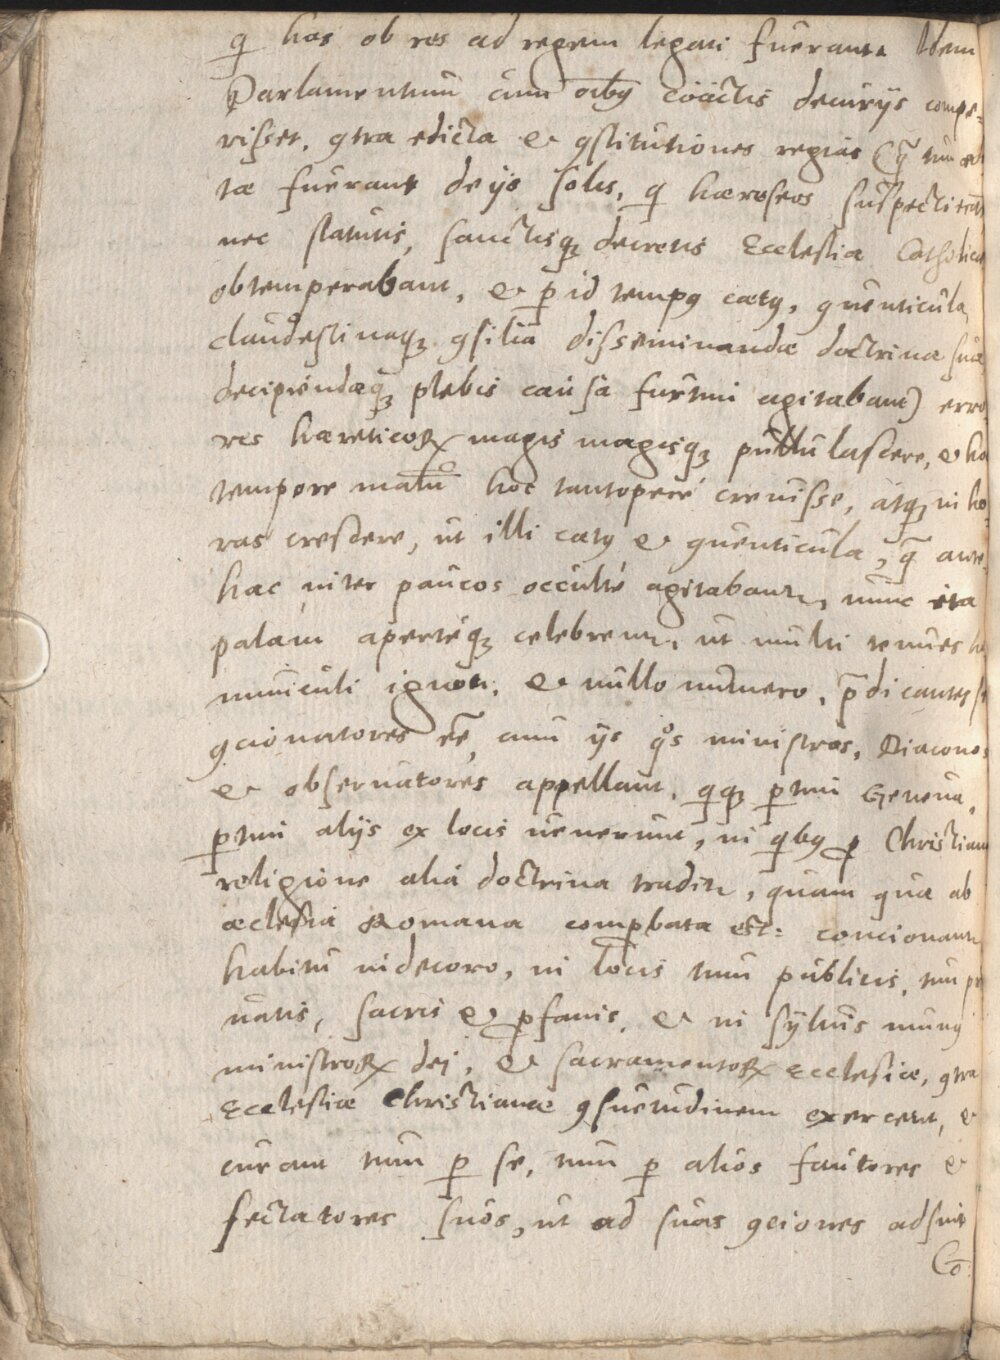 q̄ has ob res ad regem legati fuerant. Idem
Parlamentum cum oībꝰ coactis decurijs compe-
risset, ꝯtra edicta et ꝯstitutiones regias (q̄ tum
tæ fuerant de ijs solis, q̄ hæreseos suspecti erant
nec statutis, sanctisqꝫ decretis Ecclesiæ Catholicæ
obtemperabant, et ꝑ id tempꝰ cætꝰ, ꝯuenticula,
clandestinaqꝫ ꝯsilia disseminandæ doctrinæ suæ
decipiendæqꝫ plebis causa furtim agitabant) erro
res hæreticoꝝ magis magisqꝫ pullulascere, et ho
tempore malū hoc tantopere creuisse, atqꝫ in ho-
ras crescere, ut illi cætꝰ et ꝯuenticula, q̄ ante-
hac inter paucos occultè agitabant, nunc ita
palam apertéqꝫ celebrent, ut multi tenues ho
munculi ignoti, et nullo numero, p̄dicantes se
ꝯcionatores eē, cum ijs q̊s ministros, Diaconos
et obseruatores appellant, q̄qꝫ ꝑtim Geneua,
ꝑtim alijs ex locis uenerunt, in qbꝰ ꝓ Christiana
religione alia doctrina tradit, quam quæ ab
æclesia Romana comꝓbata est: concionant
habitu indecoro, in locis tum publicis, tum pri
uatis, sacris et ꝓfanis, et in syluis munꝰ
ministroꝝ dei, et sacramentoꝝ Ecclesiæ, ꝯtra
Ecclesiæ Christianæ ꝯsuetudinem exercent, et
curant tum ꝑ se, tum ꝑ alios fautores et
sectatores suos, ut ad suas ꝯciones adsint
Cō